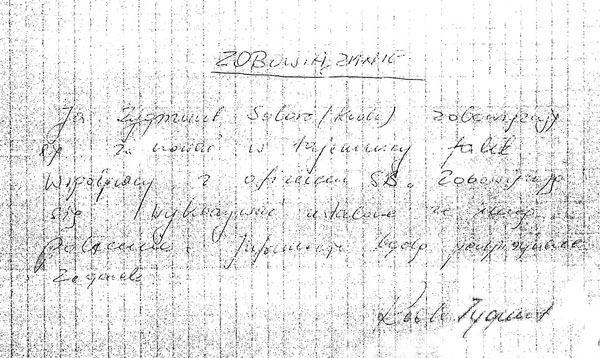 ZOBOWIĄZANIE
Ja Zygmunt Solorz (Krok) zobowiązuję
się zachować w tajemnicy fakt
współpracy z oficerem SB. Zobowiązuję
się wykonywać ustalone ze mną
polecenia. Informacje będę podpisywał
Zegarek